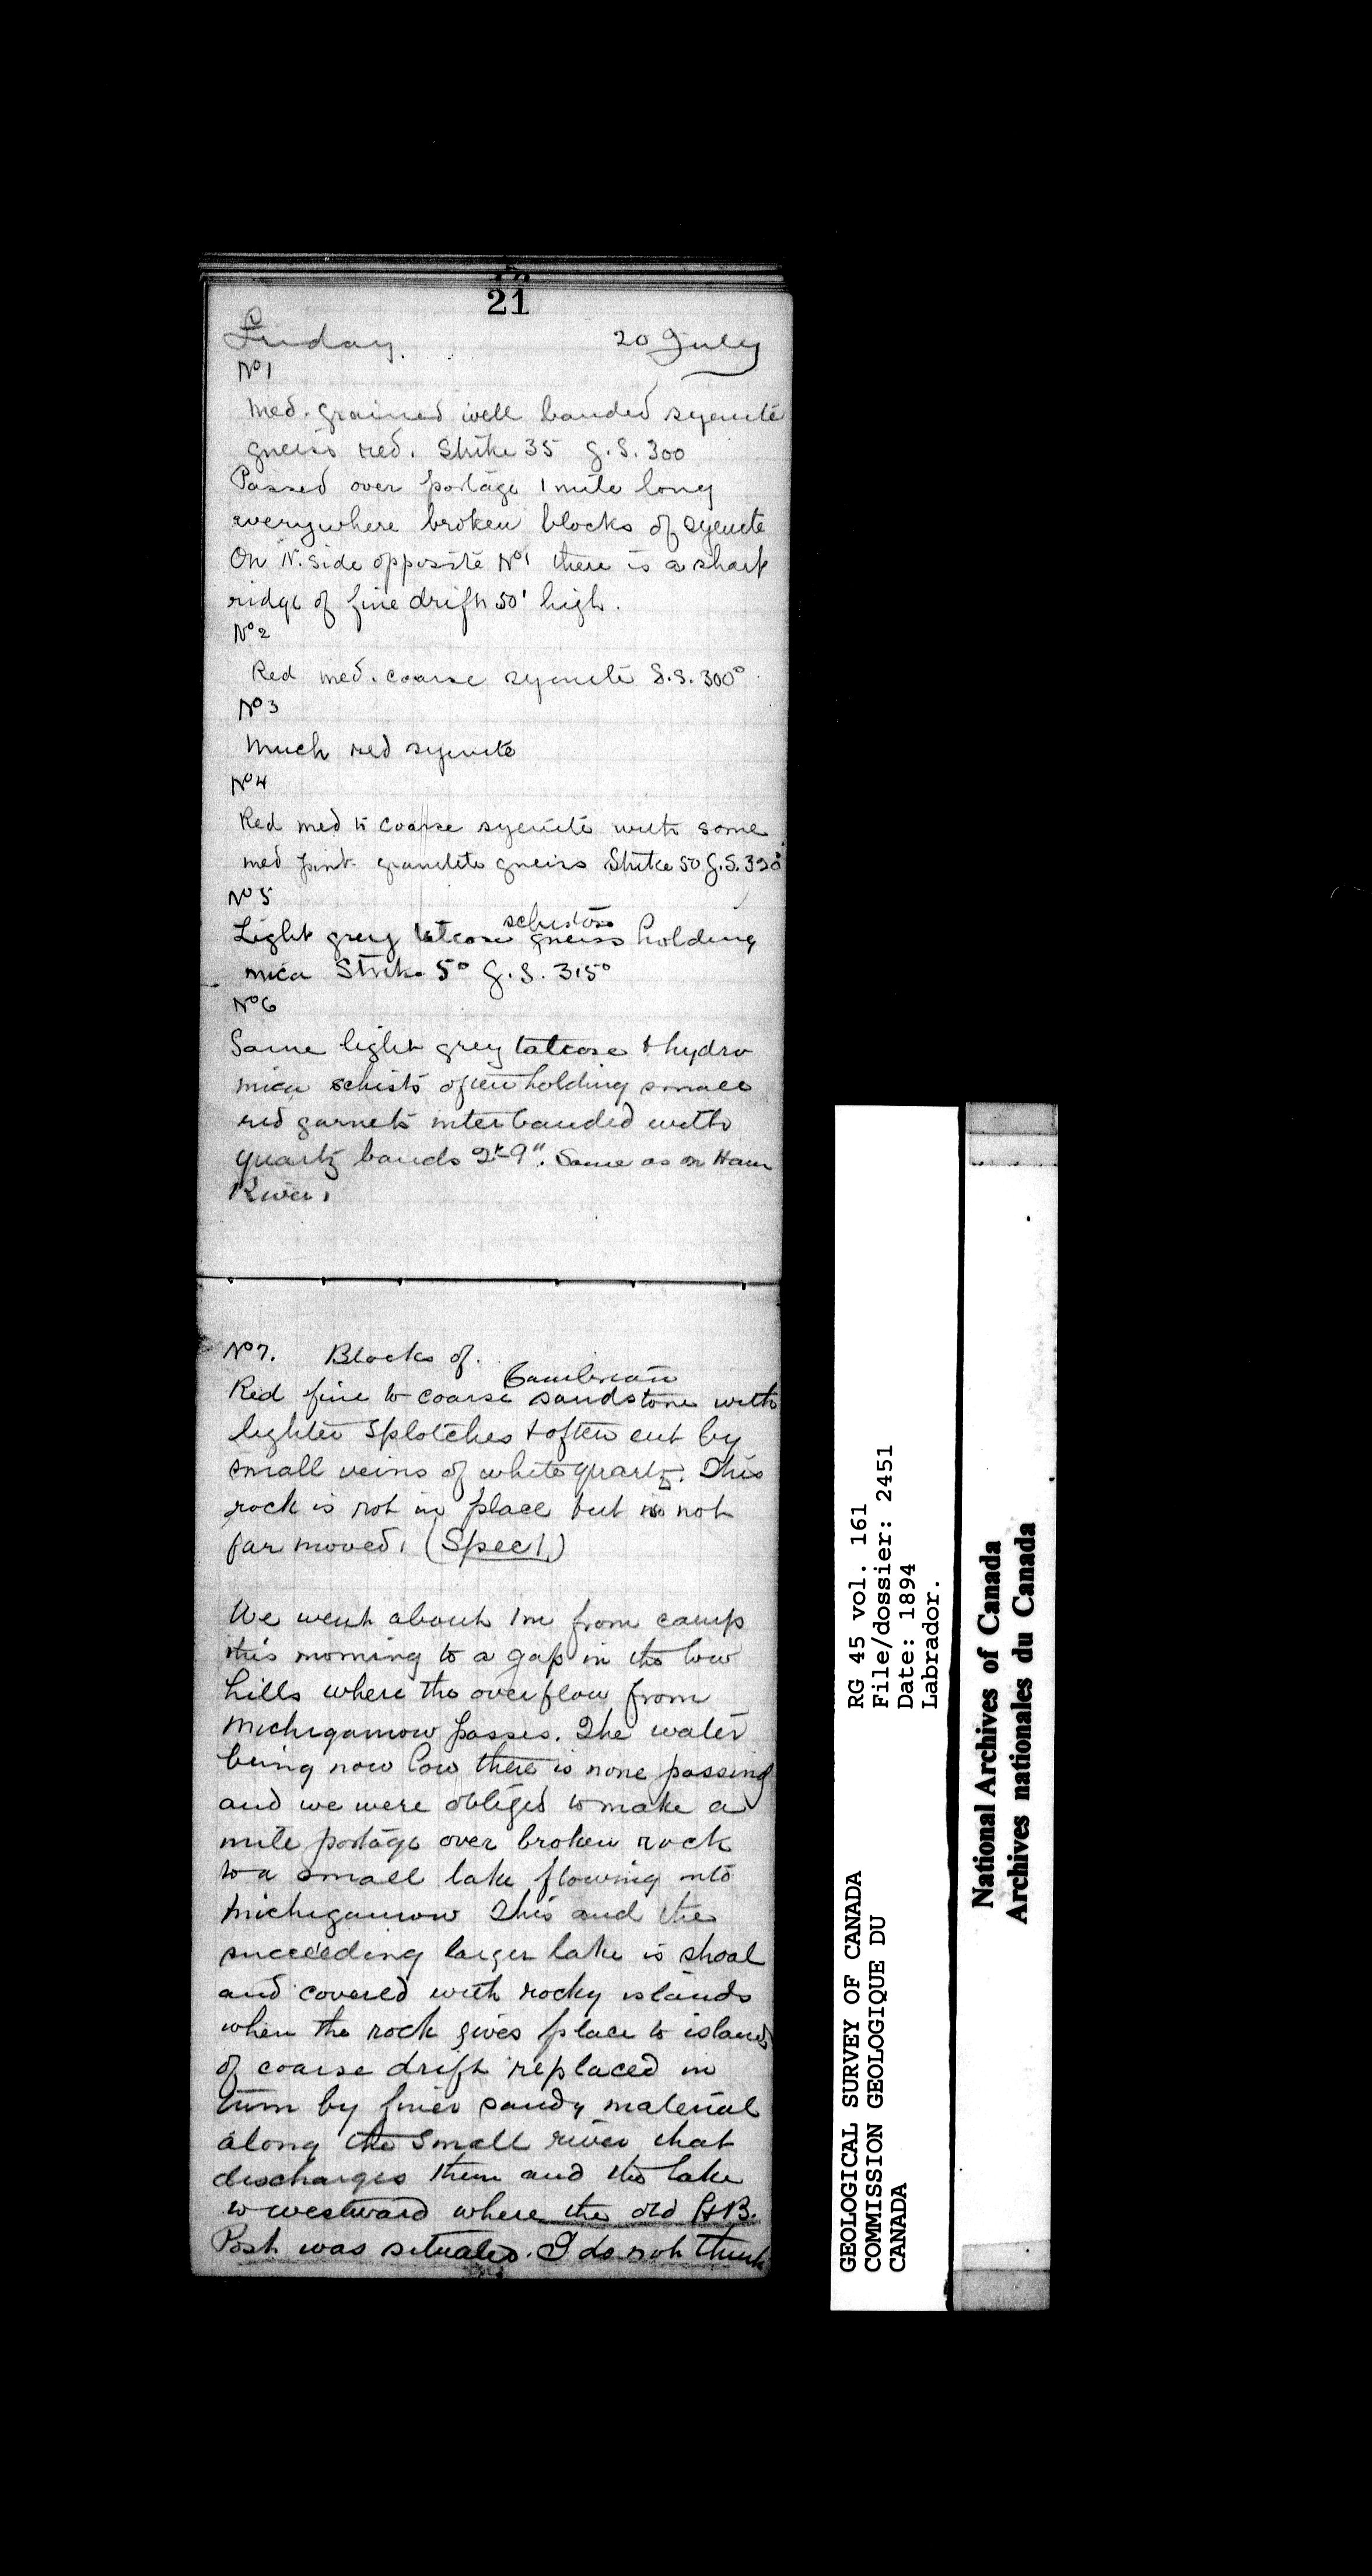 21
Friday. 20 July
No 1
Med. grained well banded syenite
gneiss red. Strike 35 g.S. 300
Passed over portage 1 mile long
everywhere broken blocks of syenite
On N. side opposite No 1 there is a sharp
ridge of fine drift 50' high.
No 2
Red med. coarse syenite g.S. 300°
No 3
Much red syenite
No 4
Red med to coarse syenite with some
med pink granite gneiss Strike 50 g.S. 320°
No 5
schistose
Light grey talcose gneiss holding
mica Strike 5° g.S. 315°
No 6
Same light grey talcose & hydro
mica schists often holding small
red garnets interbanded with
quartz bands 2"-9". Same as on Ham
River.
No 7. Blocks of.
Cambrian
Red fine to coarse sandstone with
lighter splotches & often cut by
small veins of white quartz. This
rock is not in place but is not
far moved. (Spec 1.)
We went about 1m from camp
this morning to a gap in the low
hills where the overflow from
Michigamow passes. The water
being now low there is none passing
and we were obliged to make a
mile portage over broken rock
to a small lake flowing into
Michigamow This and the
succeeding larger lake is shoal
and covered with rocky islands
when the rock gives place to islands
of coarse drift replaced in
turn by finer sandy material
along the small river that
discharges them and the lake
to westward where the old H.B.
Post was situated. I do not think
RG 45 vol. 161
File/dossier: 2451
Date: 1894
Labrador.
GEOLOGICAL SURVEY OF CANADA
COMMISSION GEOLOGIQUE DU
CANADA
National Archives of Canada
Archives nationales du Canada